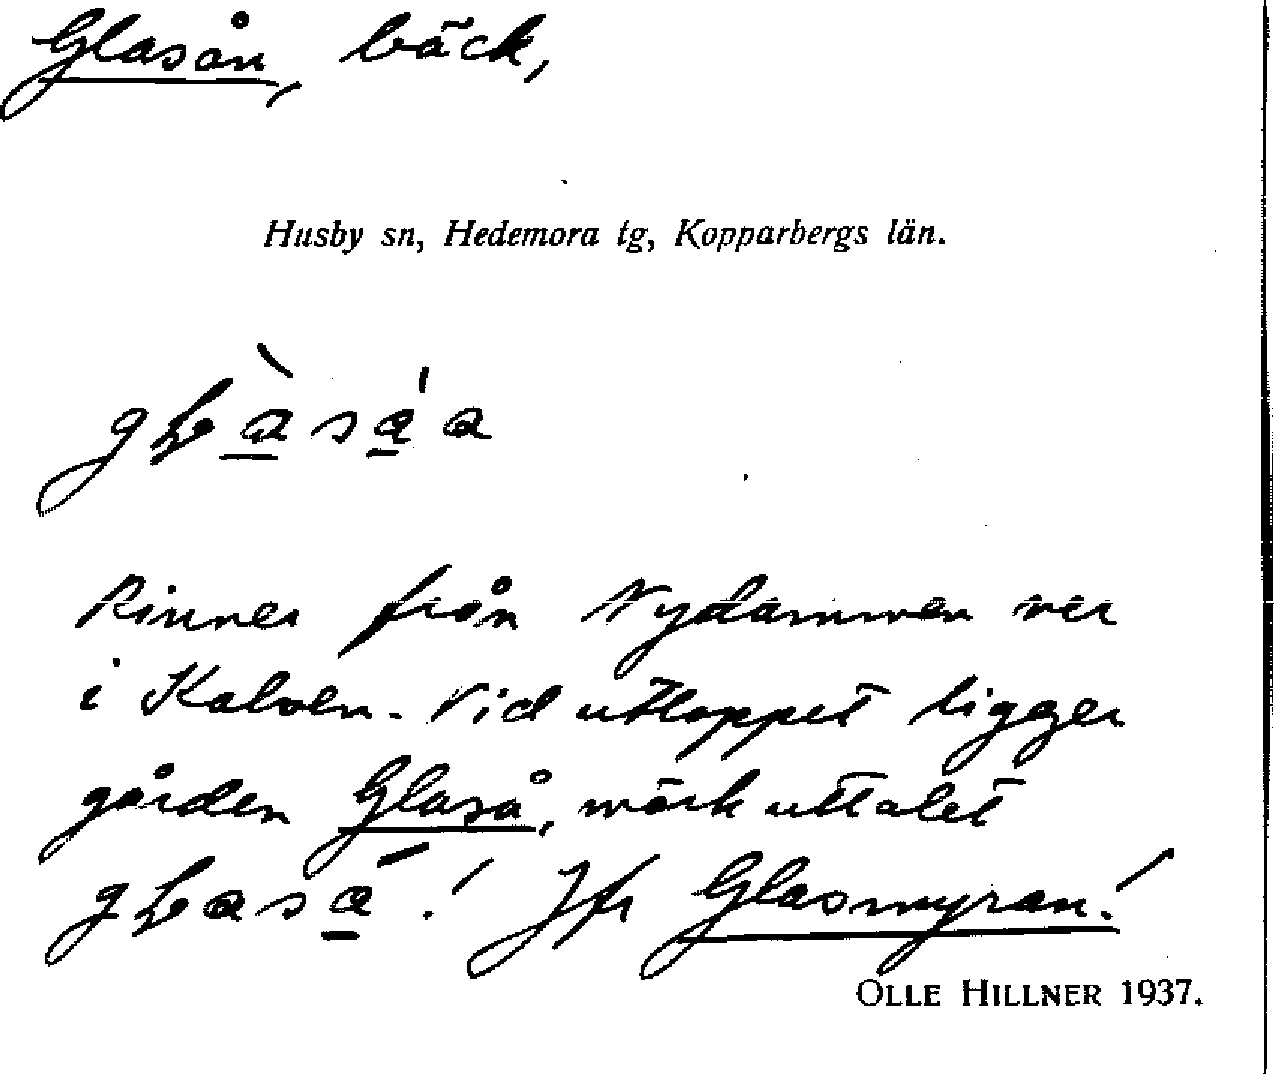 Glasån, bäck,
Husby sn, Hedemora tg, Kopparbergs län.
Rinner från Nydammen ner
i Kalven. Vid utloppet ligger
gården Glaså, märk uttalet
! Jfr Glasmyran!
OLLE HILLNER 1937.